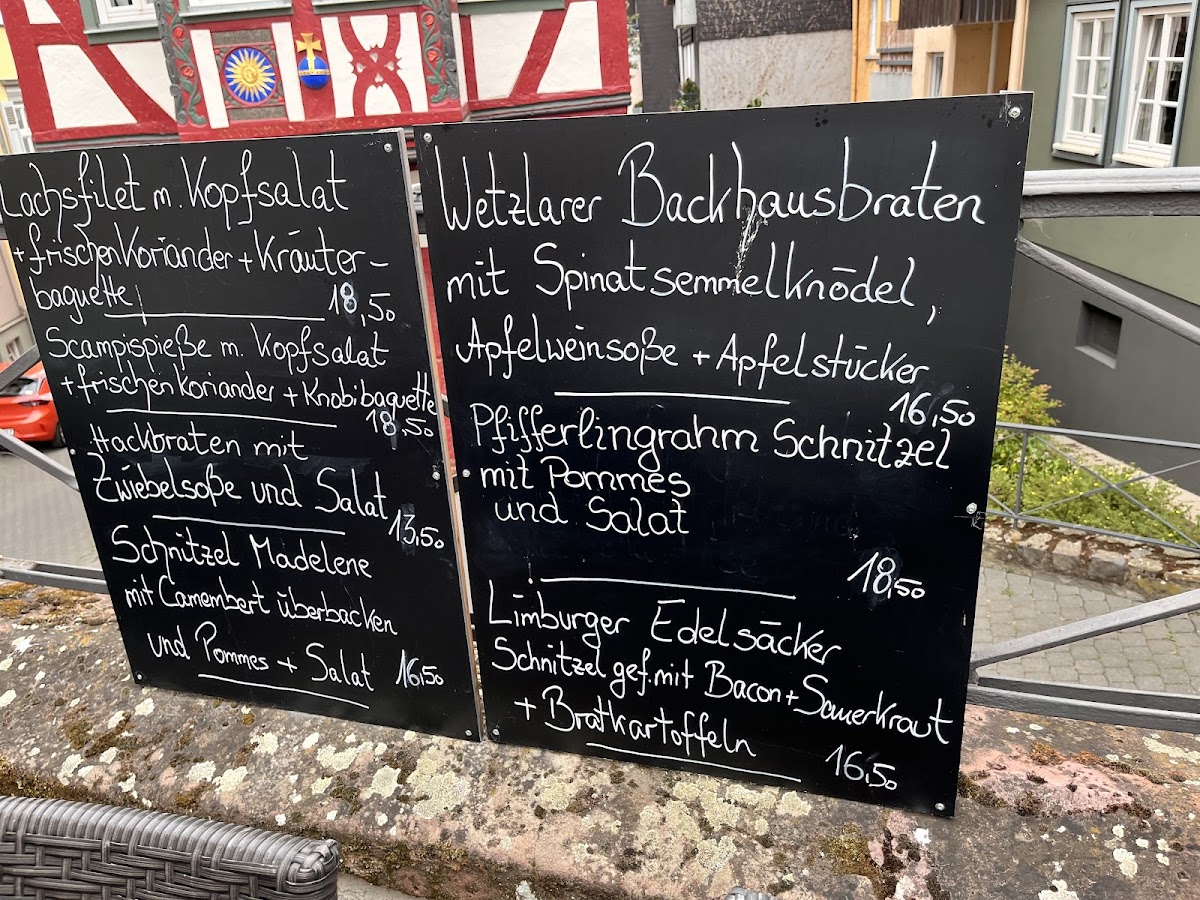 Lachsfilet m. Kopfsalat
+ frischen Koriander + Kräuter-
baguette
18,50
Scampispieße m. Kopfsalat
+ frischen Koriander + Knobibaguette
18,50
Hackbraten mit
Zwiebelsoße und Salat
13,50
Schnitzel Madelene
mit Camembert überbacken
und Pommes + Salat 16,50
Wetzlarer Backhausbraten
mit Spinatsemmelknödel,
Apfelweinsoße + Apfelstücker
16,50
Pfifferlingrahm Schnitzel
mit Pommes
und Salat
18,50
Limburger Edelsäcker
Schnitzel gef. mit Bacon + Sauerkraut
+ Bratkartoffeln
16,50